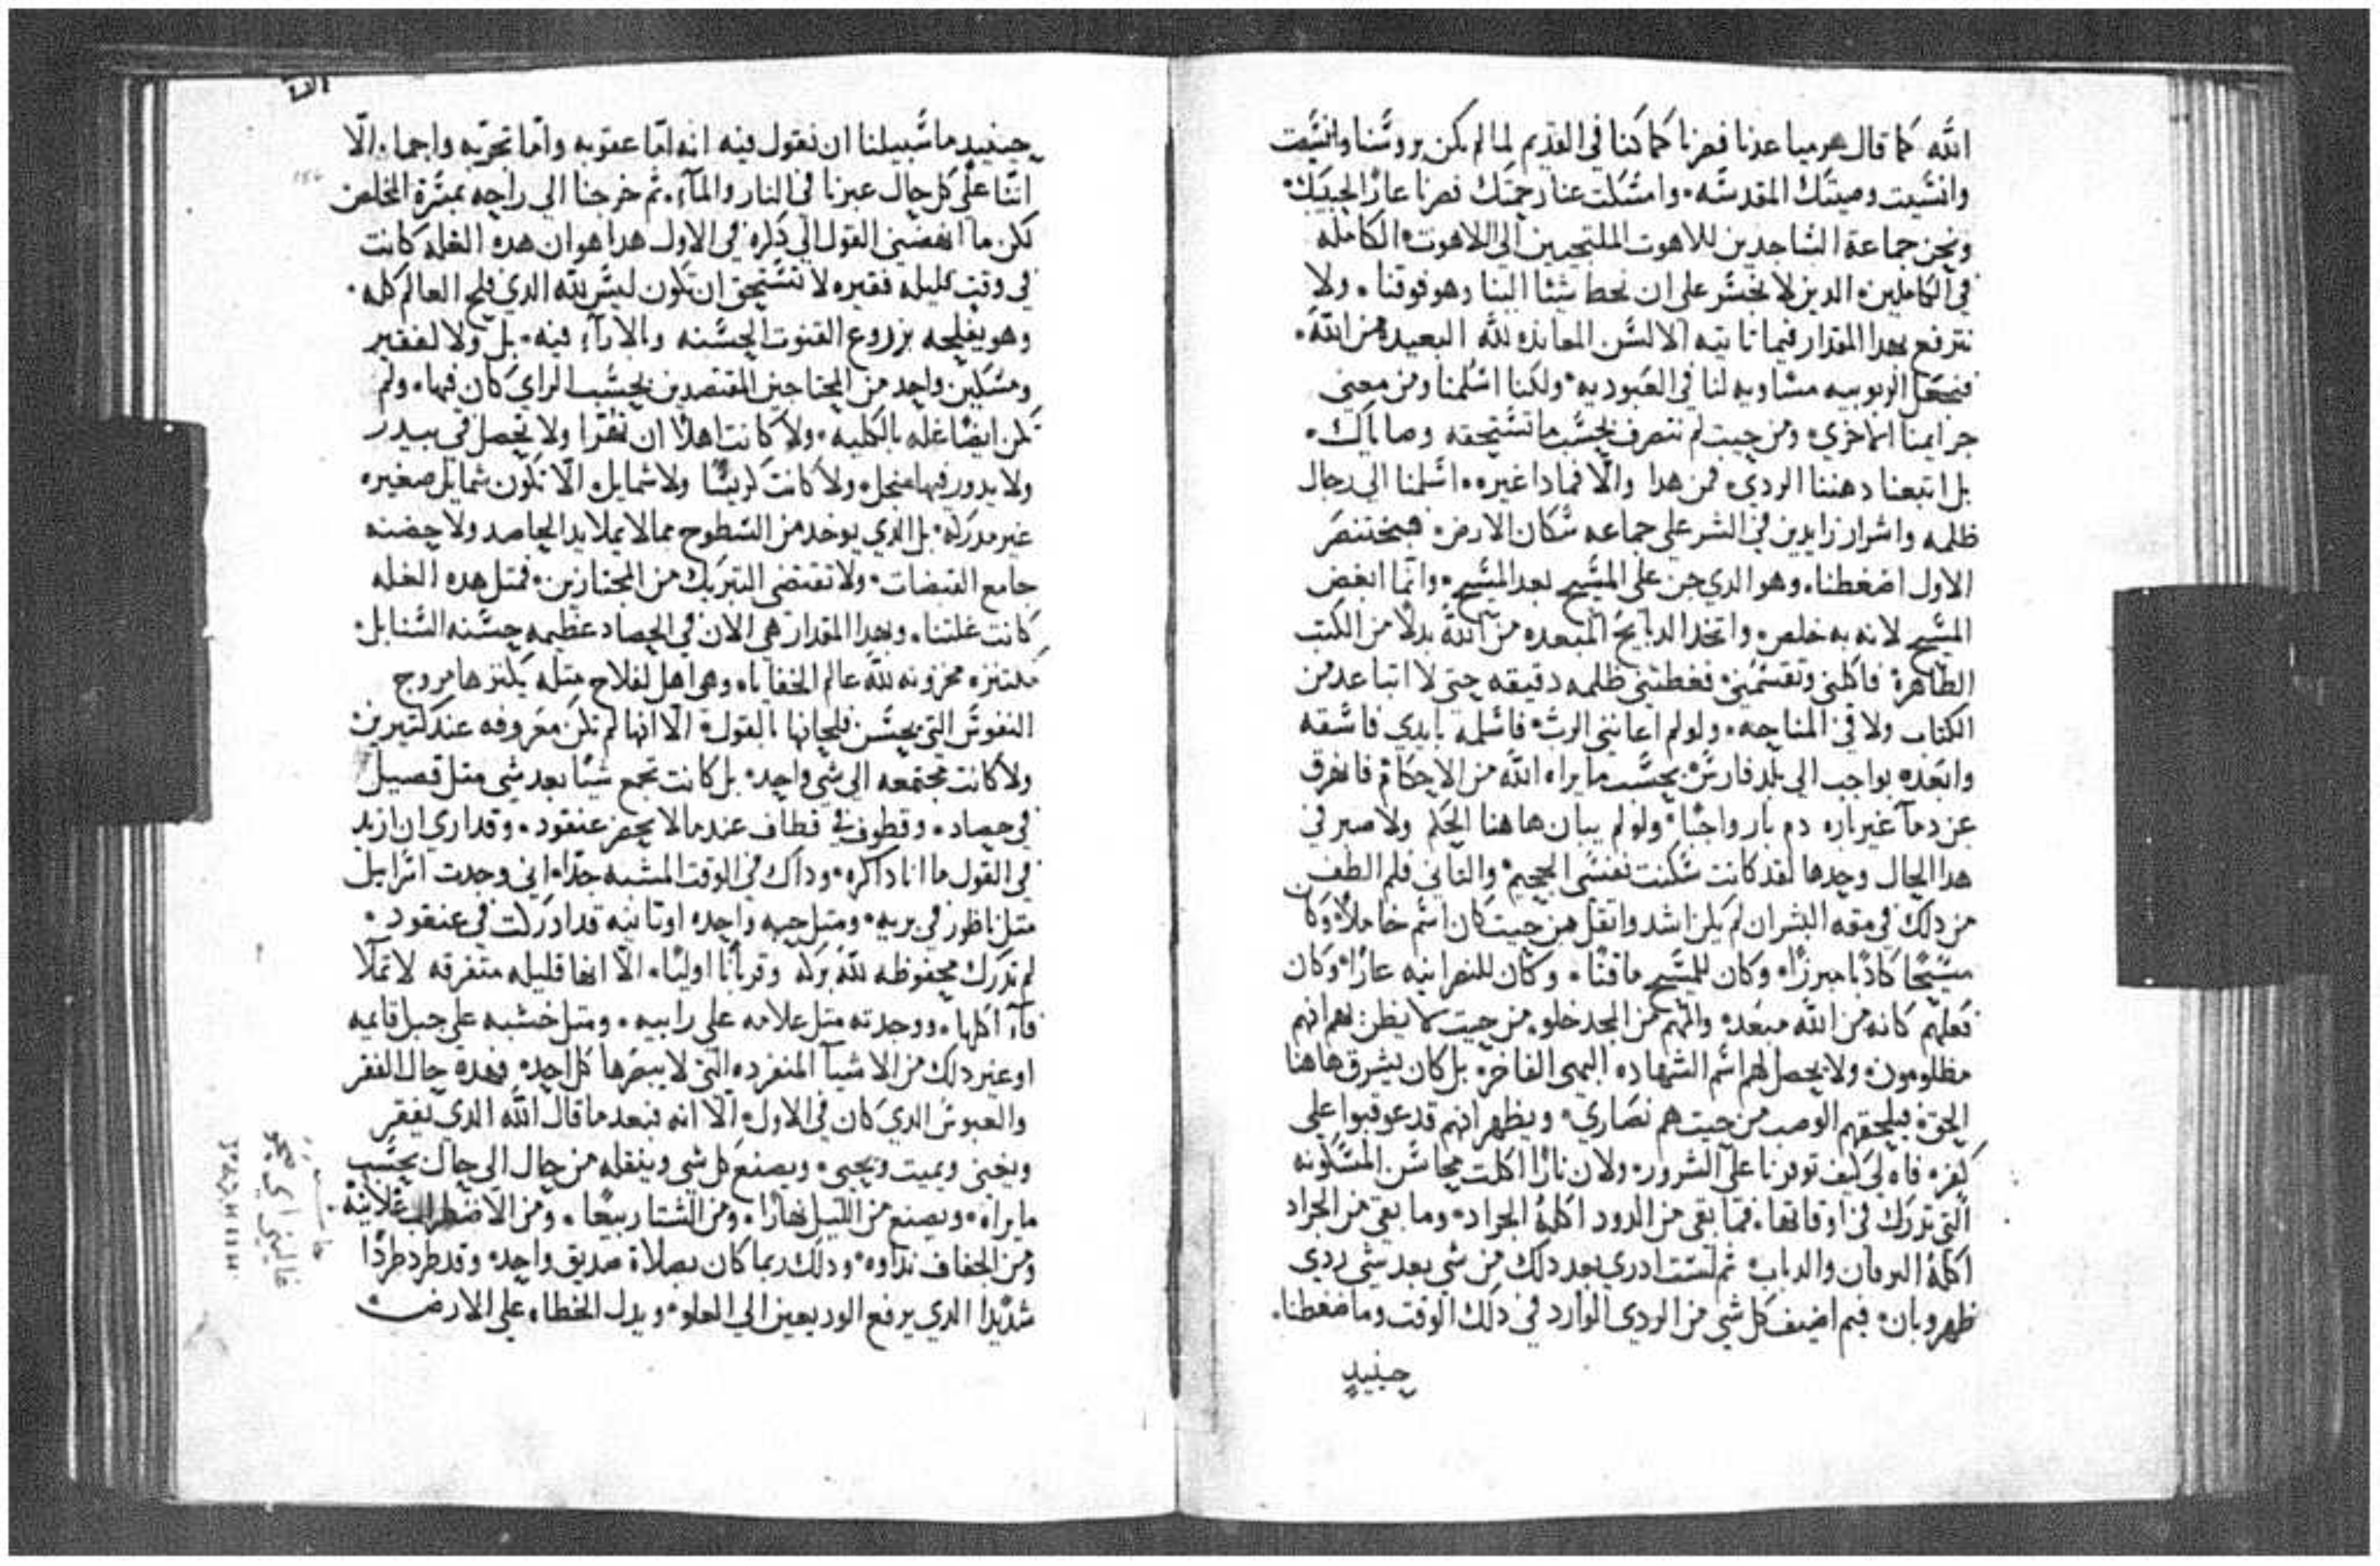 الله كما قال هرميا عدنا فصرنا كما كنا في القديم لما لم تكن بروسنا وانسيت
وانسيت وصيتك المقدسه وامسكت عنا رحمتك فصرنا عارًا لحبيبك
ونحن جماعة الساجدين للاهوت الملتجيين الي اللاهوت الكامله
في الكاملين الدين لا نجسر علي ان نحط شيئا الينا وهو فوقنا ولا
نترفع بهدا المقدار فيما تاتيه الالسن المعانده لله البعيده من الله
فنجعل الربوبيه مساويه لنا في العبوديه ولكنا اسلمنا ومن معني
جرايمنا الاخري ومن حيت لم نتصرف بحسب ما تستحقه وصاياك
بل اتبعنا دهننا الردي فمن هدا والا فمادا غيره اسلمنا الي رجال
ظلمه واشرار زايدين في الشر علي جماعه سكان الارض فبختنصر
الاول اضغطنا وهو الدي جن علي المسيح بعد المسيح وانما ابغض
المسيح لانه به خلص واتخد الدبايح المبعده من الله بدلًا من الكتب
الطاهرة فاكلني وتقسمني فغطتني ظلمه دقيقه حتي لا اتباعد من
الكتاب ولا في المناحه ولو لم اعانني الرب فاسلمه بايدي فاسقه
وابعده بواجب الي بلد فارس بحسب ما يراه الله من الاحكام فاهرق
عن دمآ غير باره دم بار واجبًا ولو لم يبان هاهنا الحكم ولا صبر في
هدا الحال وحدها لقد كانت سكنت نفسي الجحيم والتاني فلم الطف
من دلك في مقه البشر ان لم يكن اشد واتقل من حيت كان اسم خاملًا وكان
مسيحًا كادبًا مبرزًا وكان للمسيح ماقتًا وكان للنصرانيه عارًا وكان
فعلهم كانه من الله مبعده والهم من المجد خلو من حيت لا يظن لهم انهم
مظلومون ولا يحصل لهم اسم الشهاده البهي الفاخر بل كان يشرق هاهنا
الحق فيلحقهم الوصب من حيت هم نصاري ويظهر انهم قد عوقبوا علي
كفر فاه لي كيف توفرنا علي الشرور ولان نارًا اكلت محاسن المسكونه
التي تدرك في اوقاتها فما بقي من الدود اكله الجراد وما بقي من الجراد
اكله اليرقان والدباب تم لست ادري بعد دلك من شي بعد شي ردي
ظهر وبان فيم اضيف كل شي من الردي الوارد في دلك الوقت وما ضغطنا
حينيد
حينيد ما سبيلنا ان نقول فيه انه اما عقوبه واما تجربه واحما الا
اننا علي كل حال عبرنا في النار والمآء تم خرجنا الي راحه بمسرة المخلص
لكن ما انهضني القول الي دكره في الاول هدا هو ان هده الغله كانت
في وقت قليله فقيره لا تستحق ان تكون ليس لله الدي فلح العالم كله
وهو يفلحه بزروع القنوت الحسنه والارآء فيه بل ولا لفقير
ومسكين واحد من المحتاجين المقتصدين بحسب الراي كان فيها ولم
تكن ايضًا غله بالكليه ولا كانت اهلًا ان تهرا ولا تحصل في بيدر
ولا يدور فيها منجل ولا كانت كريسًا ولا شمايل الا تكون شمايل صغيره
غير مدركه بل الدي يوخد من السطوح مما لا يملا يد الحاصد ولا حضنه
جامع القبضات ولا تقتضي التبريك من المجتازين فمتل هده الغله
كانت غلتنا وبهدا المقدار هي الان في الحصاد عظيمه حسنه السنابل
مكتنزه مخزونه لله عالم الخفايا وهي اهل لفلاح متله يكنزها مروج
النفوس التي يحسن فلحانها بالقول الا انها لم تكن معروفه عند كتيرين
ولا كانت مجتمعه الي شي واحد بل كانت تجمع شيًا بعد شي متل قصيل
في حصاد وقطوف في قطاف عندما لا يحضر عنقود وقد اري ان ازيد
في القول ما انا داكره وداك في الوقت المشبه جدًا اني وجدت اسرايل
متل ناظور في بريه ومتل حبه واحده او تانيه قد ادركت في عنقود
لم تدرك محفوظه لله بركه وقربانًا اوليًا الا انها قليله متفرقه لا تملا
فآء اكلها ووجدته متل علامه علي رابيه ومتل خشبه علي جبل قايمه
او غير دلك من الاشيآ المنفرده التي لا يبصرها كل احد فهده حال الفقر
والعبوس الدي كان في الاول الا انه فبعد ما قال الله الدي يفقر
ويغني ويميت ويحيي ويصنع كل شي وينقله من حال الي حال بحسب
ما يراه ويصنع من الليل نهارًا ومن الشتا ربيعًا ومن الاضطراب علانيه
ومن الجفاف نداوه ودلك ربما كان بصلاة صديق واحد وقد طرد طردًا
شديدًا الدي يرفع الوديعين الي العلو ويدل الخطاه علي الارض